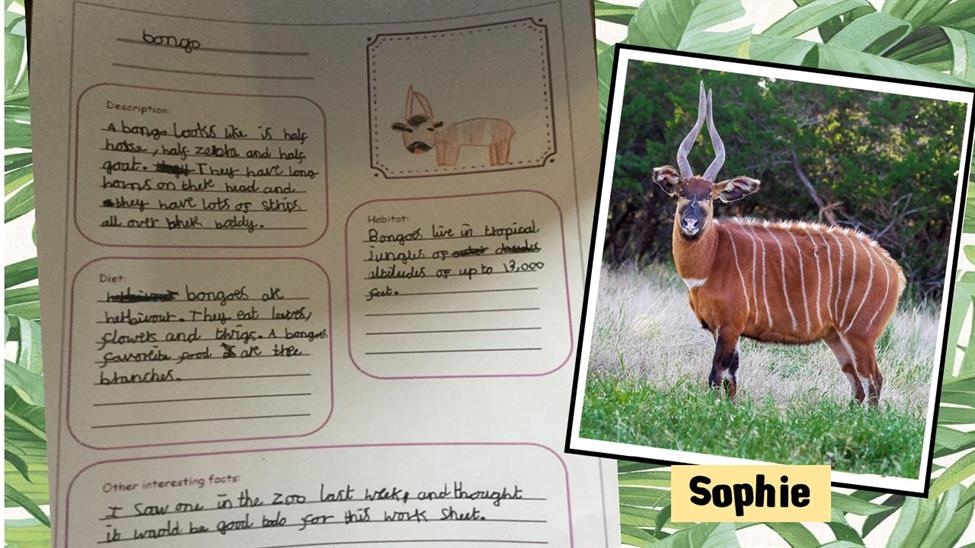 bongo
Description:
A bongo looks like is half
horse, half zebra and half
goat. They have long
horns on their head and
they have lots of strips
all over their boddy.
Habitat:
Bongoes live in tropical
jungles of
altitudes of up to 13,000
feet.
Diet:
bongoes are
herbivour. They eat leaves,
flowers and twigs. A bongoes
favorite food is are tree
branches.
Other interesting facts:
I saw one in the zoo last week, and thought
it would be good todo for this work sheet.
Sophie